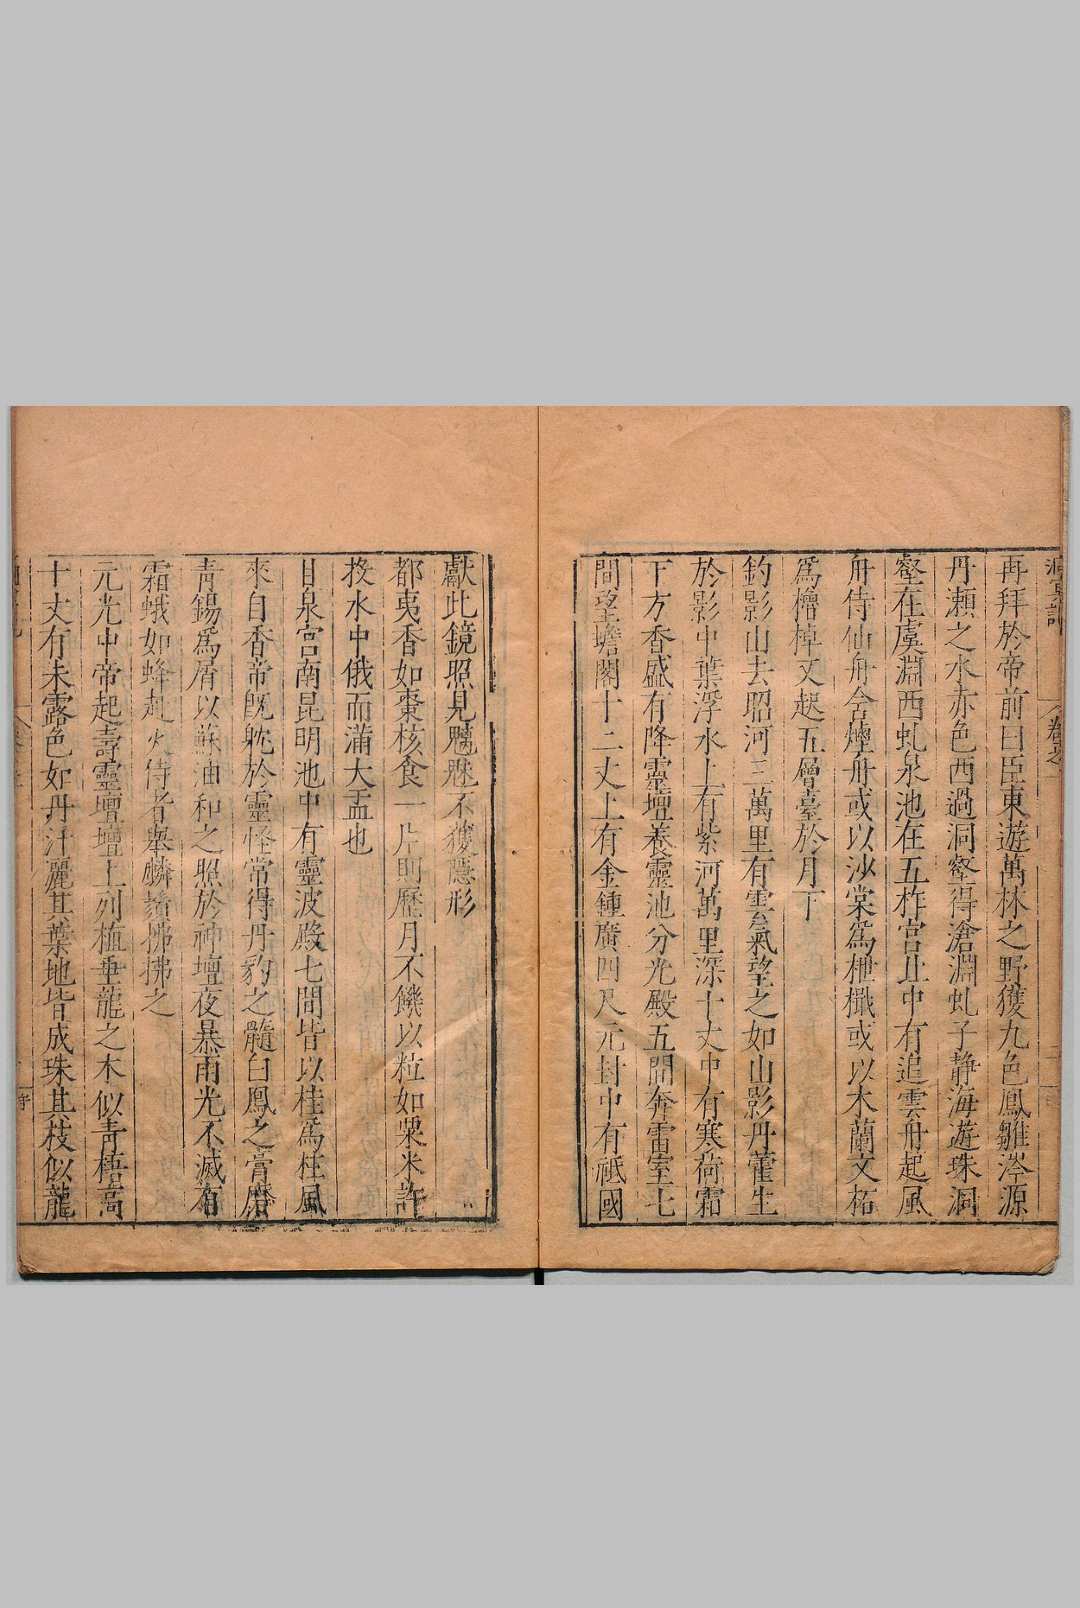 洞冥記
卷之一
再拜於帝前曰臣東遊萬林之野獲九色鳳雛涔源
丹瀨之水赤色西過洞壑得滄淵虬子靜海遊珠洞
壑在虞淵西虬泉池在五柞宮北中有追雲舟起風
舟侍仙舟含煙舟或以沙棠爲枻檝或以木蘭文柘
爲櫓棹又起五層臺於月下
釣影山去昭河三萬里有雲氣望之如山影丹藿生
於影中葉浮水上有紫河萬里深十丈中有寒荷霜
下方香盛有降靈壇養靈池分光殿五間奔雷室七
間望蟾閣十二丈上有金鍾廣四尺元封中有祗國
獻此鏡照見魑魅不獲隱形
都夷香如棗核食一片則歷月不饑以粒如粟米許
投水中俄而滿大盂也
甘泉宮南昆明池中有靈波殿七間皆以桂爲柱風
來自香帝旣躭於靈怪常得丹豹之髓白鳳之膏磨
青錫爲屑以蘇油和之照於神壇夜暴雨光不滅有
霜蛾如蜂赴火侍者舉麟鬚拂拂之
元光中帝起壽靈壇壇上列植垂龍之木似青梧高
十丈有朱露色如丹汁灑其葉地皆成珠其枝似龍